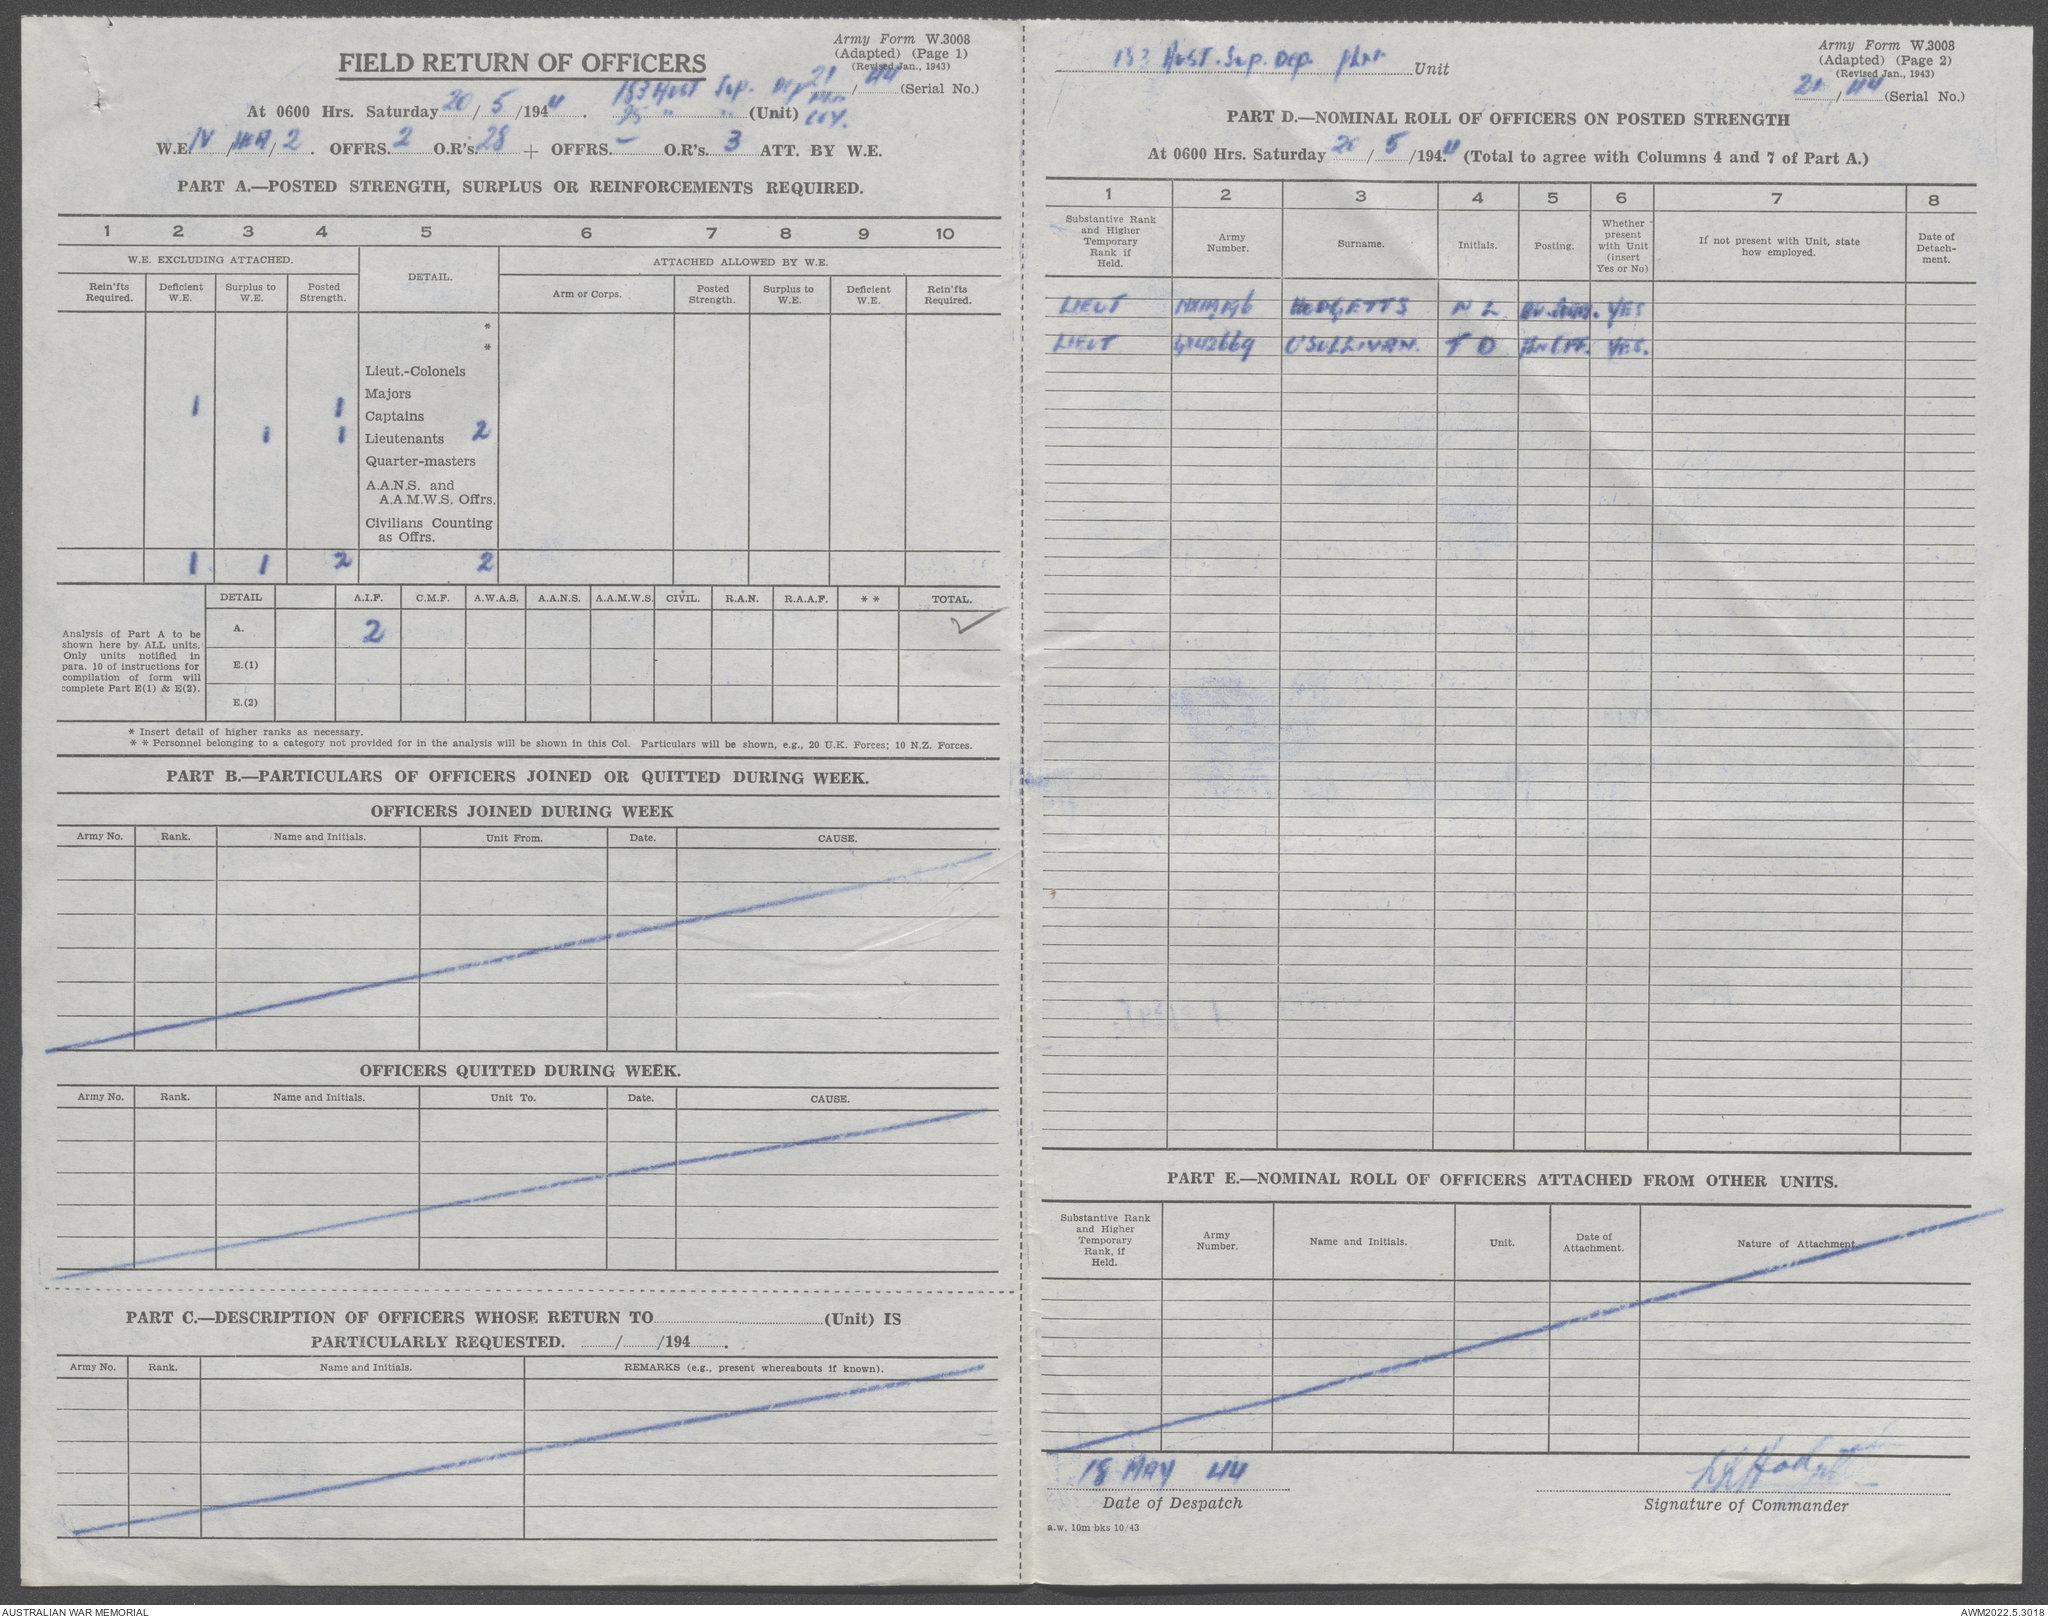 Army Form W.3008
(Adapted) (Page 1)
(Revised Jan., 1943)
FIELD RETURN OF OFFICERS
21 / 44 (Serial No.)
At 0600 Hrs. Saturday 20 / 5 /1944. 153 Aust Sup. Dep Pln (Unit)
25 " " COY.
W.E. IV / / 2. OFFRS. 2 O.R's. 28 + OFFRS. – O.R's. 3 ATT. BY W.E.
PART A.—POSTED STRENGTH, SURPLUS OR REINFORCEMENTS REQUIRED.
1 2 3 4 5 6 7 8 9 10
W.E. EXCLUDING ATTACHED. DETAIL. ATTACHED ALLOWED BY W.E.
Rein'fts Required. Deficient W.E. Surplus to W.E. Posted Strength. Arm or Corps. Posted Strength. Surplus to W.E. Deficient W.E. Rein'fts Required.
*
*
Lieut.-Colonels
Majors
1 1 Captains
1 1 Lieutenants 2
Quarter-masters
A.A.N.S. and
A.A.M.W.S. Offrs.
Civilians Counting
as Offrs.
1 1 2 2
DETAIL A.I.F. C.M.F. A.W.A.S. A.A.N.S. A.A.M.W.S. CIVIL. R.A.N. R.A.A.F. * * TOTAL.
Analysis of Part A to be
shown here by ALL units.
Only units notified in
para. 10 of instructions for
compilation of form will
complete Part E(1) & E(2).
A. 2 ✓
E.(1)
E.(2)
* Insert detail of higher ranks as necessary.
* * Personnel belonging to a category not provided for in the analysis will be shown in this Col. Particulars will be shown, e.g., 20 U.K. Forces; 10 N.Z. Forces.
PART B.—PARTICULARS OF OFFICERS JOINED OR QUITTED DURING WEEK.
OFFICERS JOINED DURING WEEK
Army No. Rank. Name and Initials. Unit From. Date. CAUSE.
OFFICERS QUITTED DURING WEEK.
Army No. Rank. Name and Initials. Unit To. Date. CAUSE.
PART C.—DESCRIPTION OF OFFICERS WHOSE RETURN TO (Unit) IS
PARTICULARLY REQUESTED. / /194 .
Army No. Rank. Name and Initials. REMARKS (e.g., present whereabouts if known).
Army Form W.3008
(Adapted) (Page 2)
(Revised Jan., 1943)
153 Aust. Sup. Dep. Unit
21 / 44 (Serial No.)
PART D.—NOMINAL ROLL OF OFFICERS ON POSTED STRENGTH
At 0600 Hrs. Saturday 20 / 5 /1944. (Total to agree with Columns 4 and 7 of Part A.)
1 2 3 4 5 6 7 8
Substantive Rank and Higher Temporary Rank if Held. Army Number. Surname. Initials. Posting. Whether present with Unit (insert Yes or No) If not present with Unit, state how employed. Date of Detach-ment.
LIEUT HODGETTS N L YES
LIEUT O'SULLIVAN. T D YES.
PART E.—NOMINAL ROLL OF OFFICERS ATTACHED FROM OTHER UNITS.
Substantive Rank and Higher Temporary Rank, if Held. Army Number. Name and Initials. Unit. Date of Attachment. Nature of Attachment.
18 MAY 44
Date of Despatch
Signature of Commander
a.w. 10m bks 10/43
AUSTRALIAN WAR MEMORIAL
AWM2022.5.3018